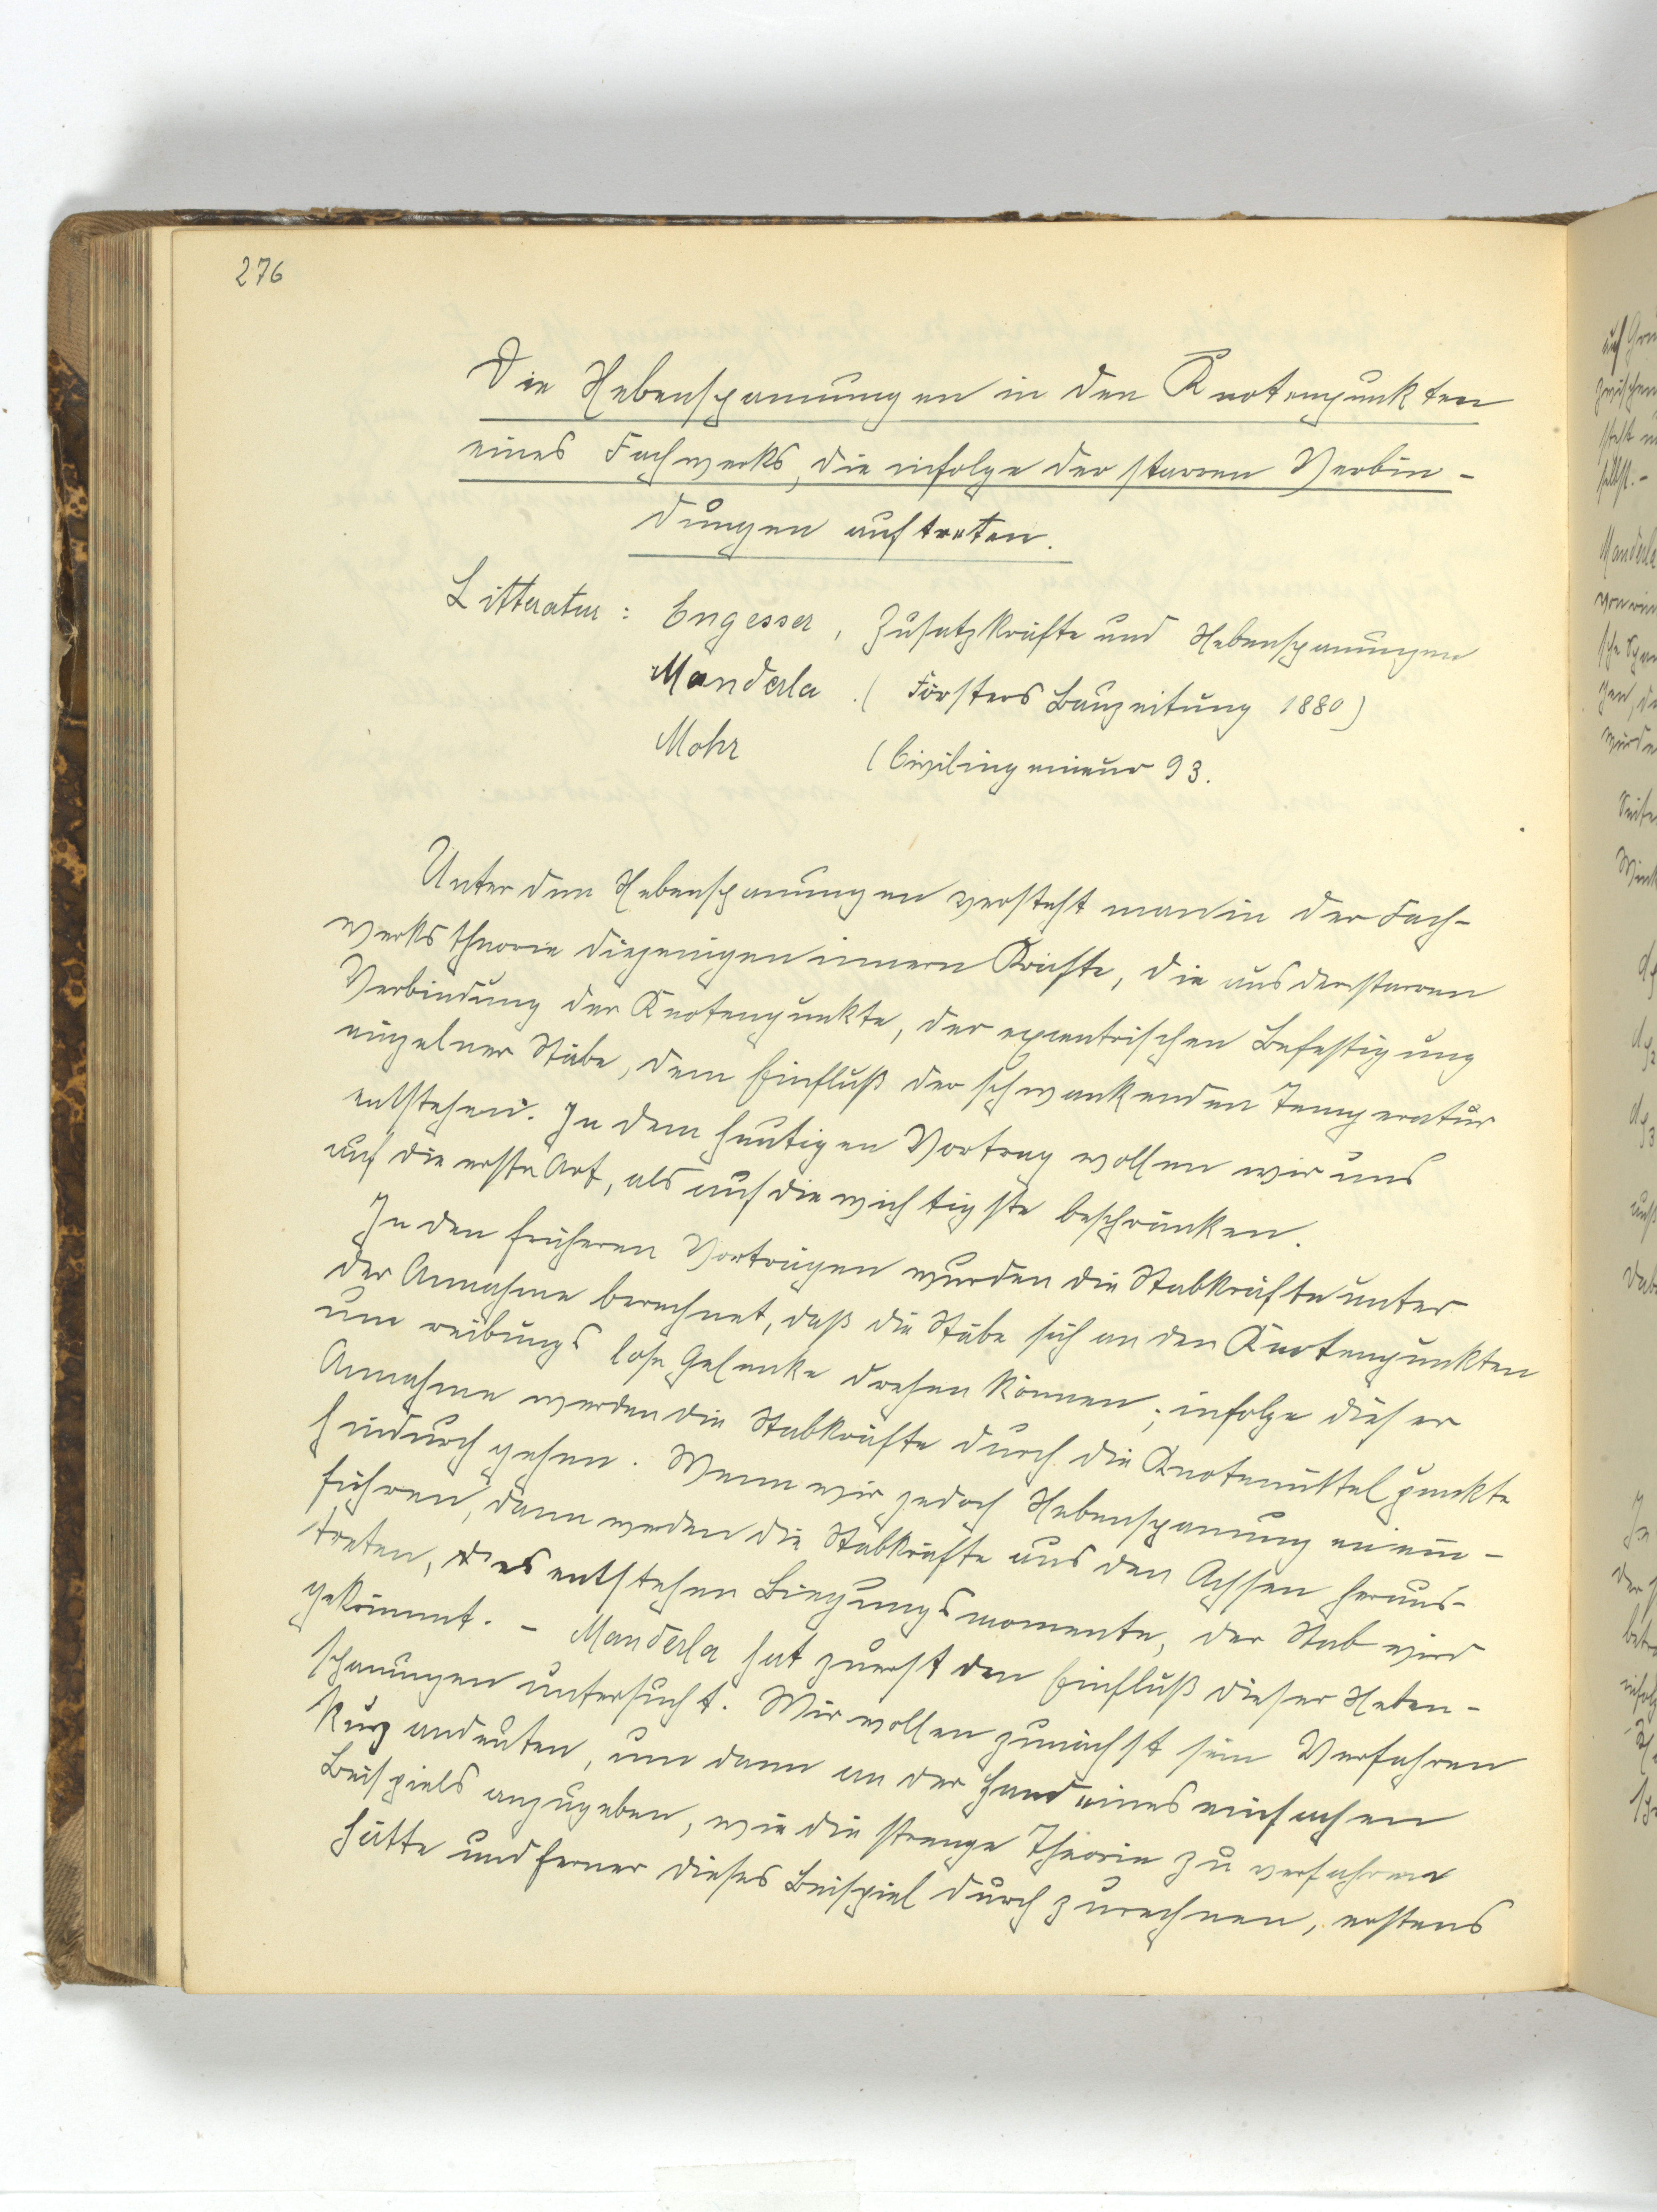 276
Die Nebenspannungen in den Knotenpunkten
eines Fachwerks, die infolge der starren Verbin-
dungen auftreten.
Litteratur: Engesser, Zusatzkräfte und Nebenspannungen
Manderla (Försters Bauzeitung 1880)
Mohr (Civilingenieur 93.
Unter den Nebenspannungen versteht man in der Fach-
werkstheorie diejenigen innern Kräfte, die aus der starren
Verbindung der Knotenpunkte, der excentrischen Befestigung
einzelner Stäbe, dem Einfluß der schwankenden Temperatur
entstehen. In dem heutigen Vortrag wollen wir uns
auf die erste Art, als auf die wichtigste beschränken.
In den früheren Vorträgen wurden die Stabkräfte unter
der Annahme berechnet, daß die Stäbe sich an den Knotenpunkten
um reibungslose Gelenke drehen können; infolge dieser
Annahme werden die Stabkräfte durch die Knotenmittelpunkte
hindurchgehen. Wenn wir jedoch Nebenspannungen ein-
führen, dann werden die Stabkräfte aus den Achsen heraus-
treten, es entstehen Biegungsmomente, der Stab wird
gekrümmt. - Manderla hat zuerst den Einfluß dieser Neben-
spannungen untersucht. Wir wollen zunächst sein Verfahren
kurz andeuten, um dann an der Hand eines einfachen
Beispiels anzugeben, wie die strenge Theorie zu verfahren
hätte und ferner dieses Beispiel durchzurechnen, erstens